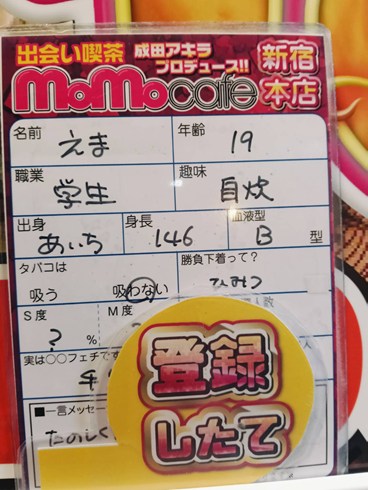 出会い喫茶 成田アキラ プロデュース!! 新宿本店
MoMocafe
名前 えま 年齢 19
職業 学生 趣味 自炊
出身 あいち 身長 146 血液型 B 型
タバコは 吸う 吸わない 勝負下着って? ひみつ
S度 ? % M度 人数
実は○○フェチです
■一言メッセー
たのしく
登録
したて